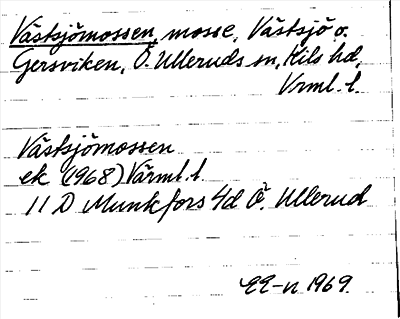 Västsjömossen, mosse, Västsjö o.
Gersviken, Ö. Ulleruds sn, Kils hd,
Vrml. l.
Västsjömossen
ek (1968) Värml. l.
11 D Munkfors 4d Ö. Ullerud
1969.